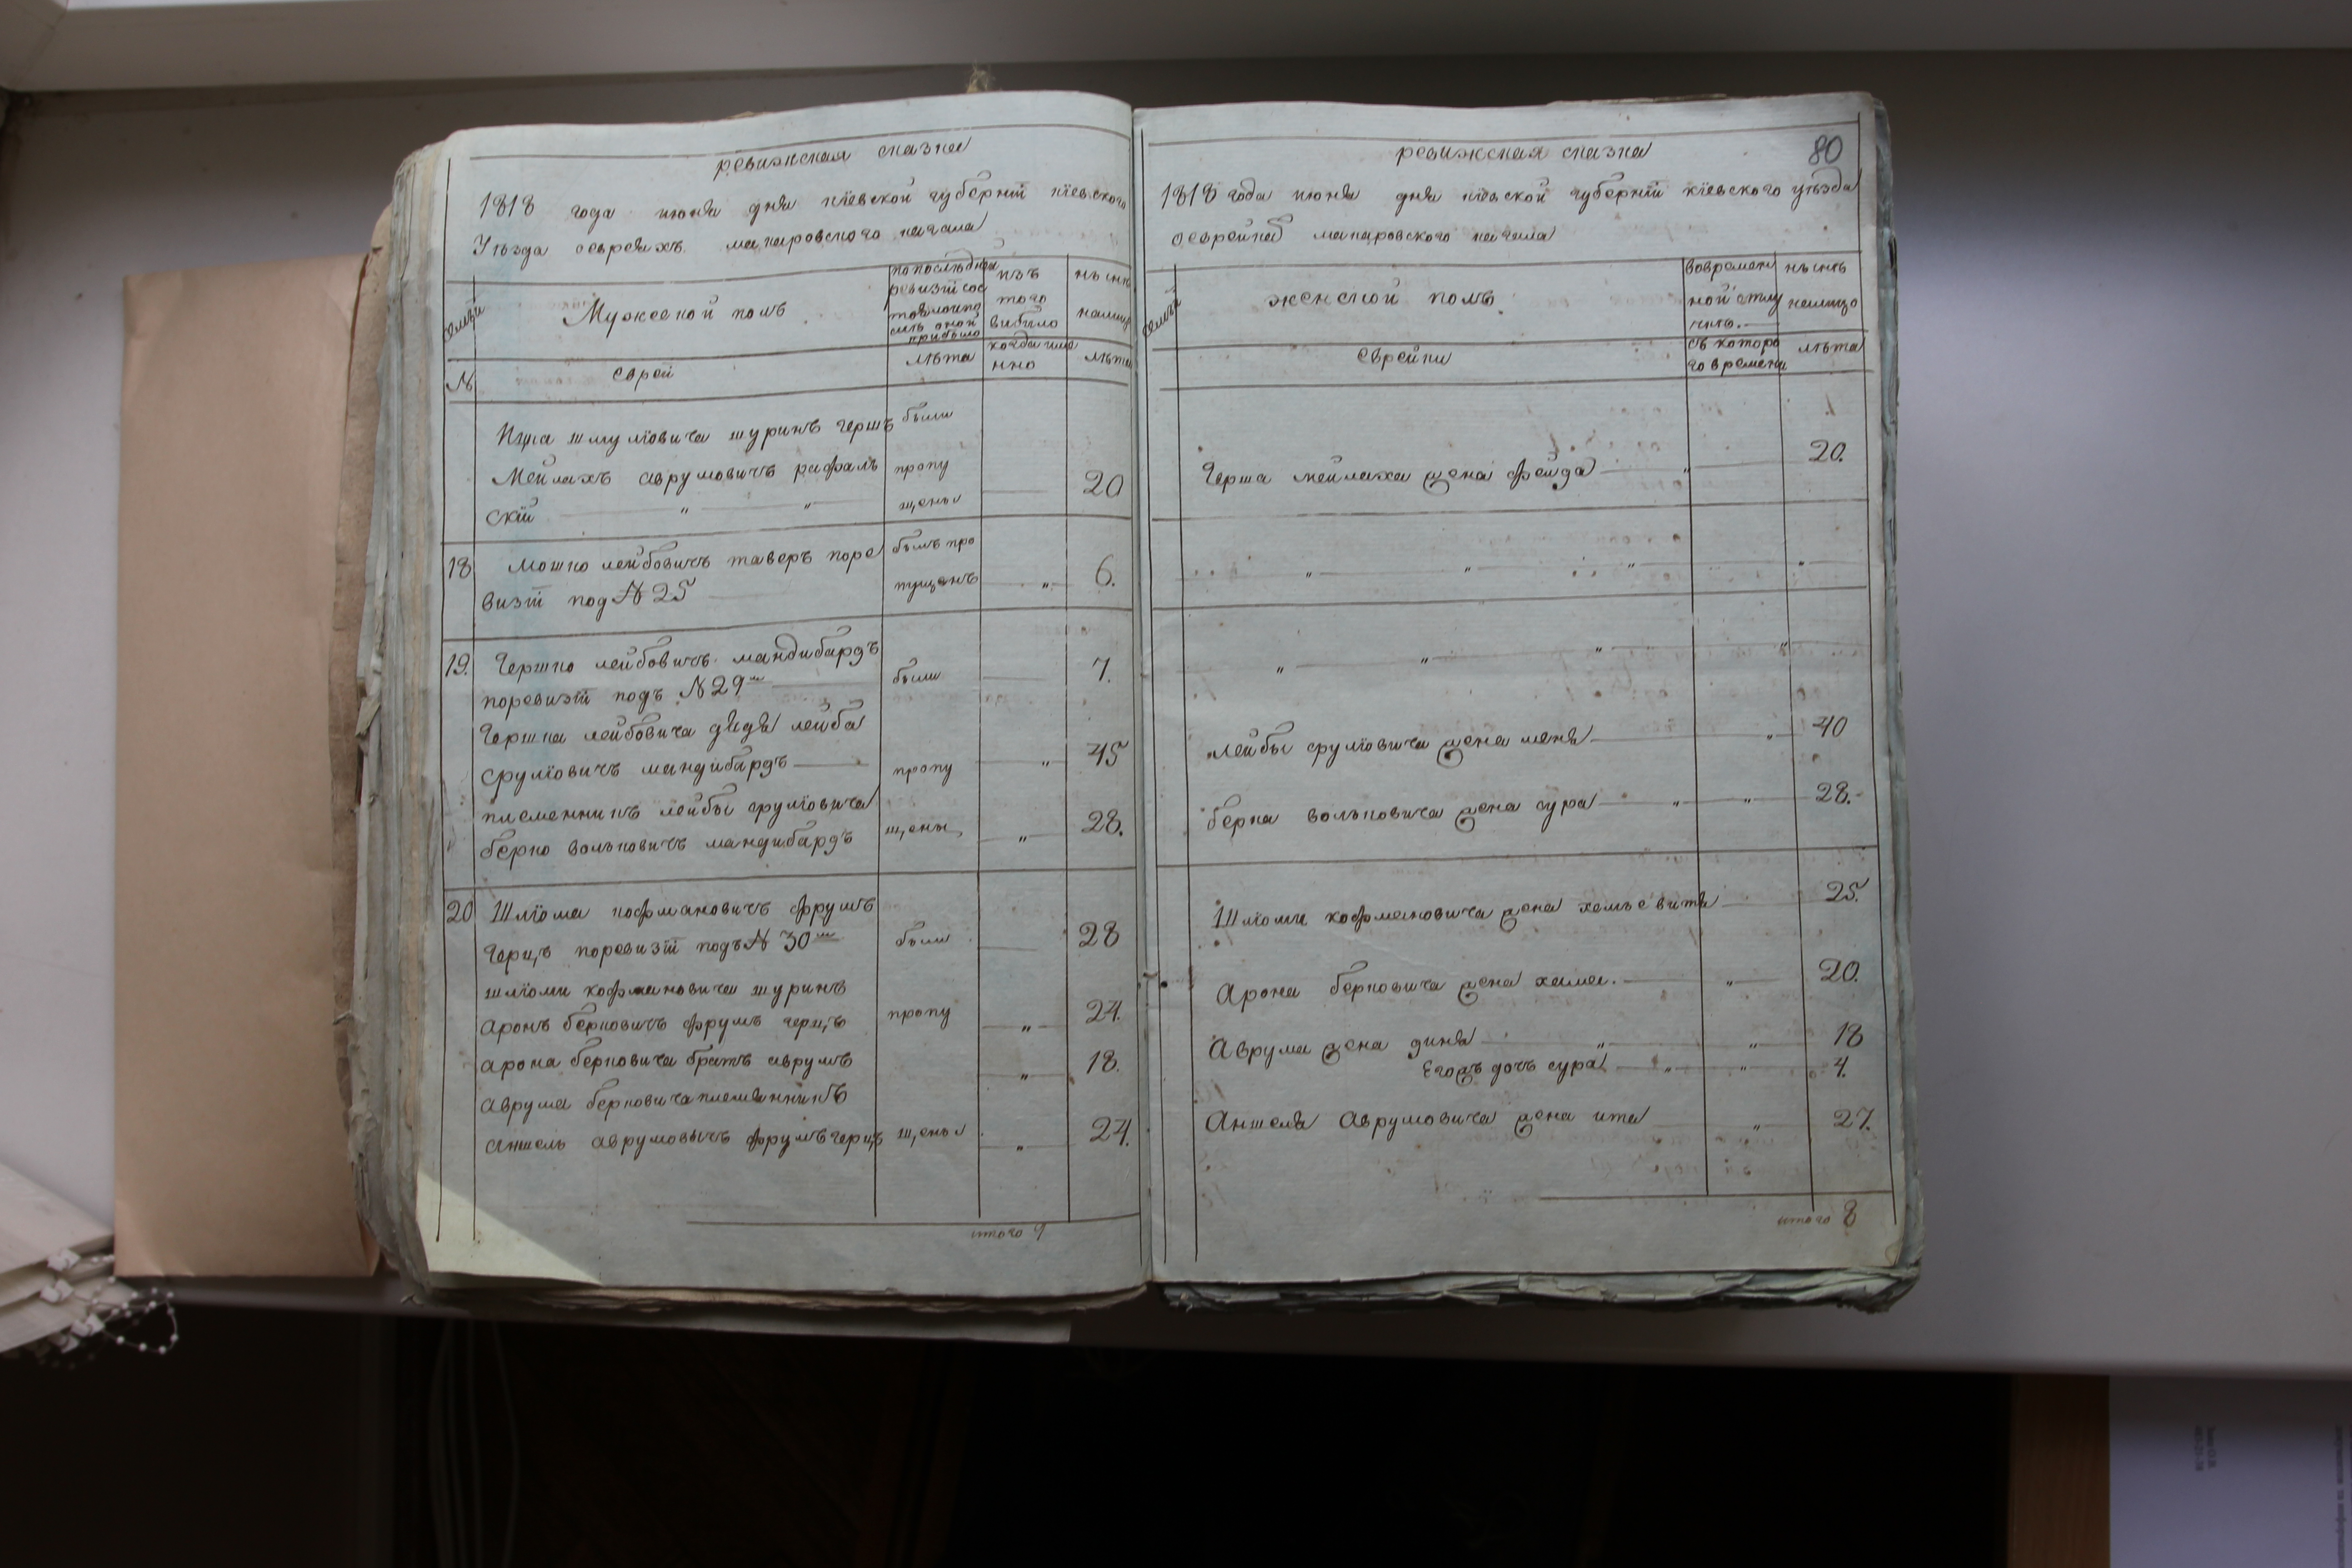 ревижская сказка
1818 года июня дня кіевской губерніи кіевского
Уѣзда оевреяхъ макаровского кагала
семьи
Мужеской полъ
попослѣдней
ревизіи сос
тояло
оной
прибыло
изъ
того
выбыло
нынѣ
налицо
№
еврей
лѣта
когда име
нно
лѣта
Ицка шмулїовича шуринъ герш были
Мейлахъ аврумовичъ рафаль пропу 20
скїй " " щены
18 Мошко лейбовичъ таверъ поре былъ про
визїи под № 25 пущенъ " 6.
19. Гершко лейбовичъ мандибардъ
поревизїи подъ № 29 были 7.
Гершка лейбовича дядя лейба
срулїовичъ мандибардъ пропу " 45
племенникъ лейбы срулїовича
берко вольковичъ мандибардъ щены " 28.
20 Шлїома кофмановичъ фрумъ
герцъ поревизїи подъ № 30 были 28
шлїоми кофмановича шуринъ
аронъ берковичъ фрумъ герцъ пропу " 24.
арона берковича братъ аврумъ " 18.
аврума берковича племянникъ
аншель аврумовичъ фрумъ герцъ щены " 24.
итого 9
80
ревижская сказка
1818 года июня дня кіевской губерніи кіевского уѣзда
оеврейка макаровского кагала
семьи
женской полъ
вовремен
ной отлу
чкѣ.
нынѣ
налицо
еврейки
съ которо
го времени
лѣта
Герша мейлаха жена фейда " 20.
" " " "
" " " "
лейбы срулїовича жена меня " 40
берка вольковича жена сура " " 28.
Шлїоми кофмановича жена 25.
Арона берковича жена хама. " 20.
Аврума жена диня " " 18
Егожъ дочь сура " " 4.
Аншеля Аврумовича жена ита " 27.
итого 8